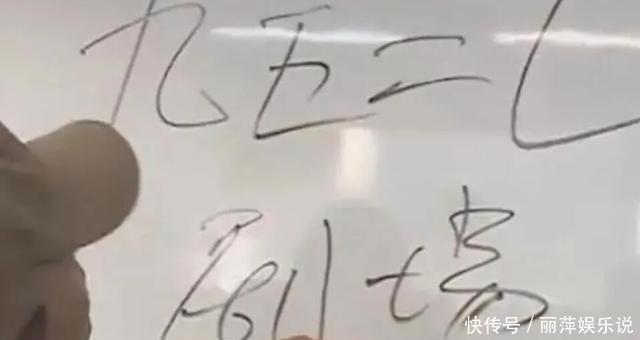 九五二七
剧场
快传号/丽萍娱乐说